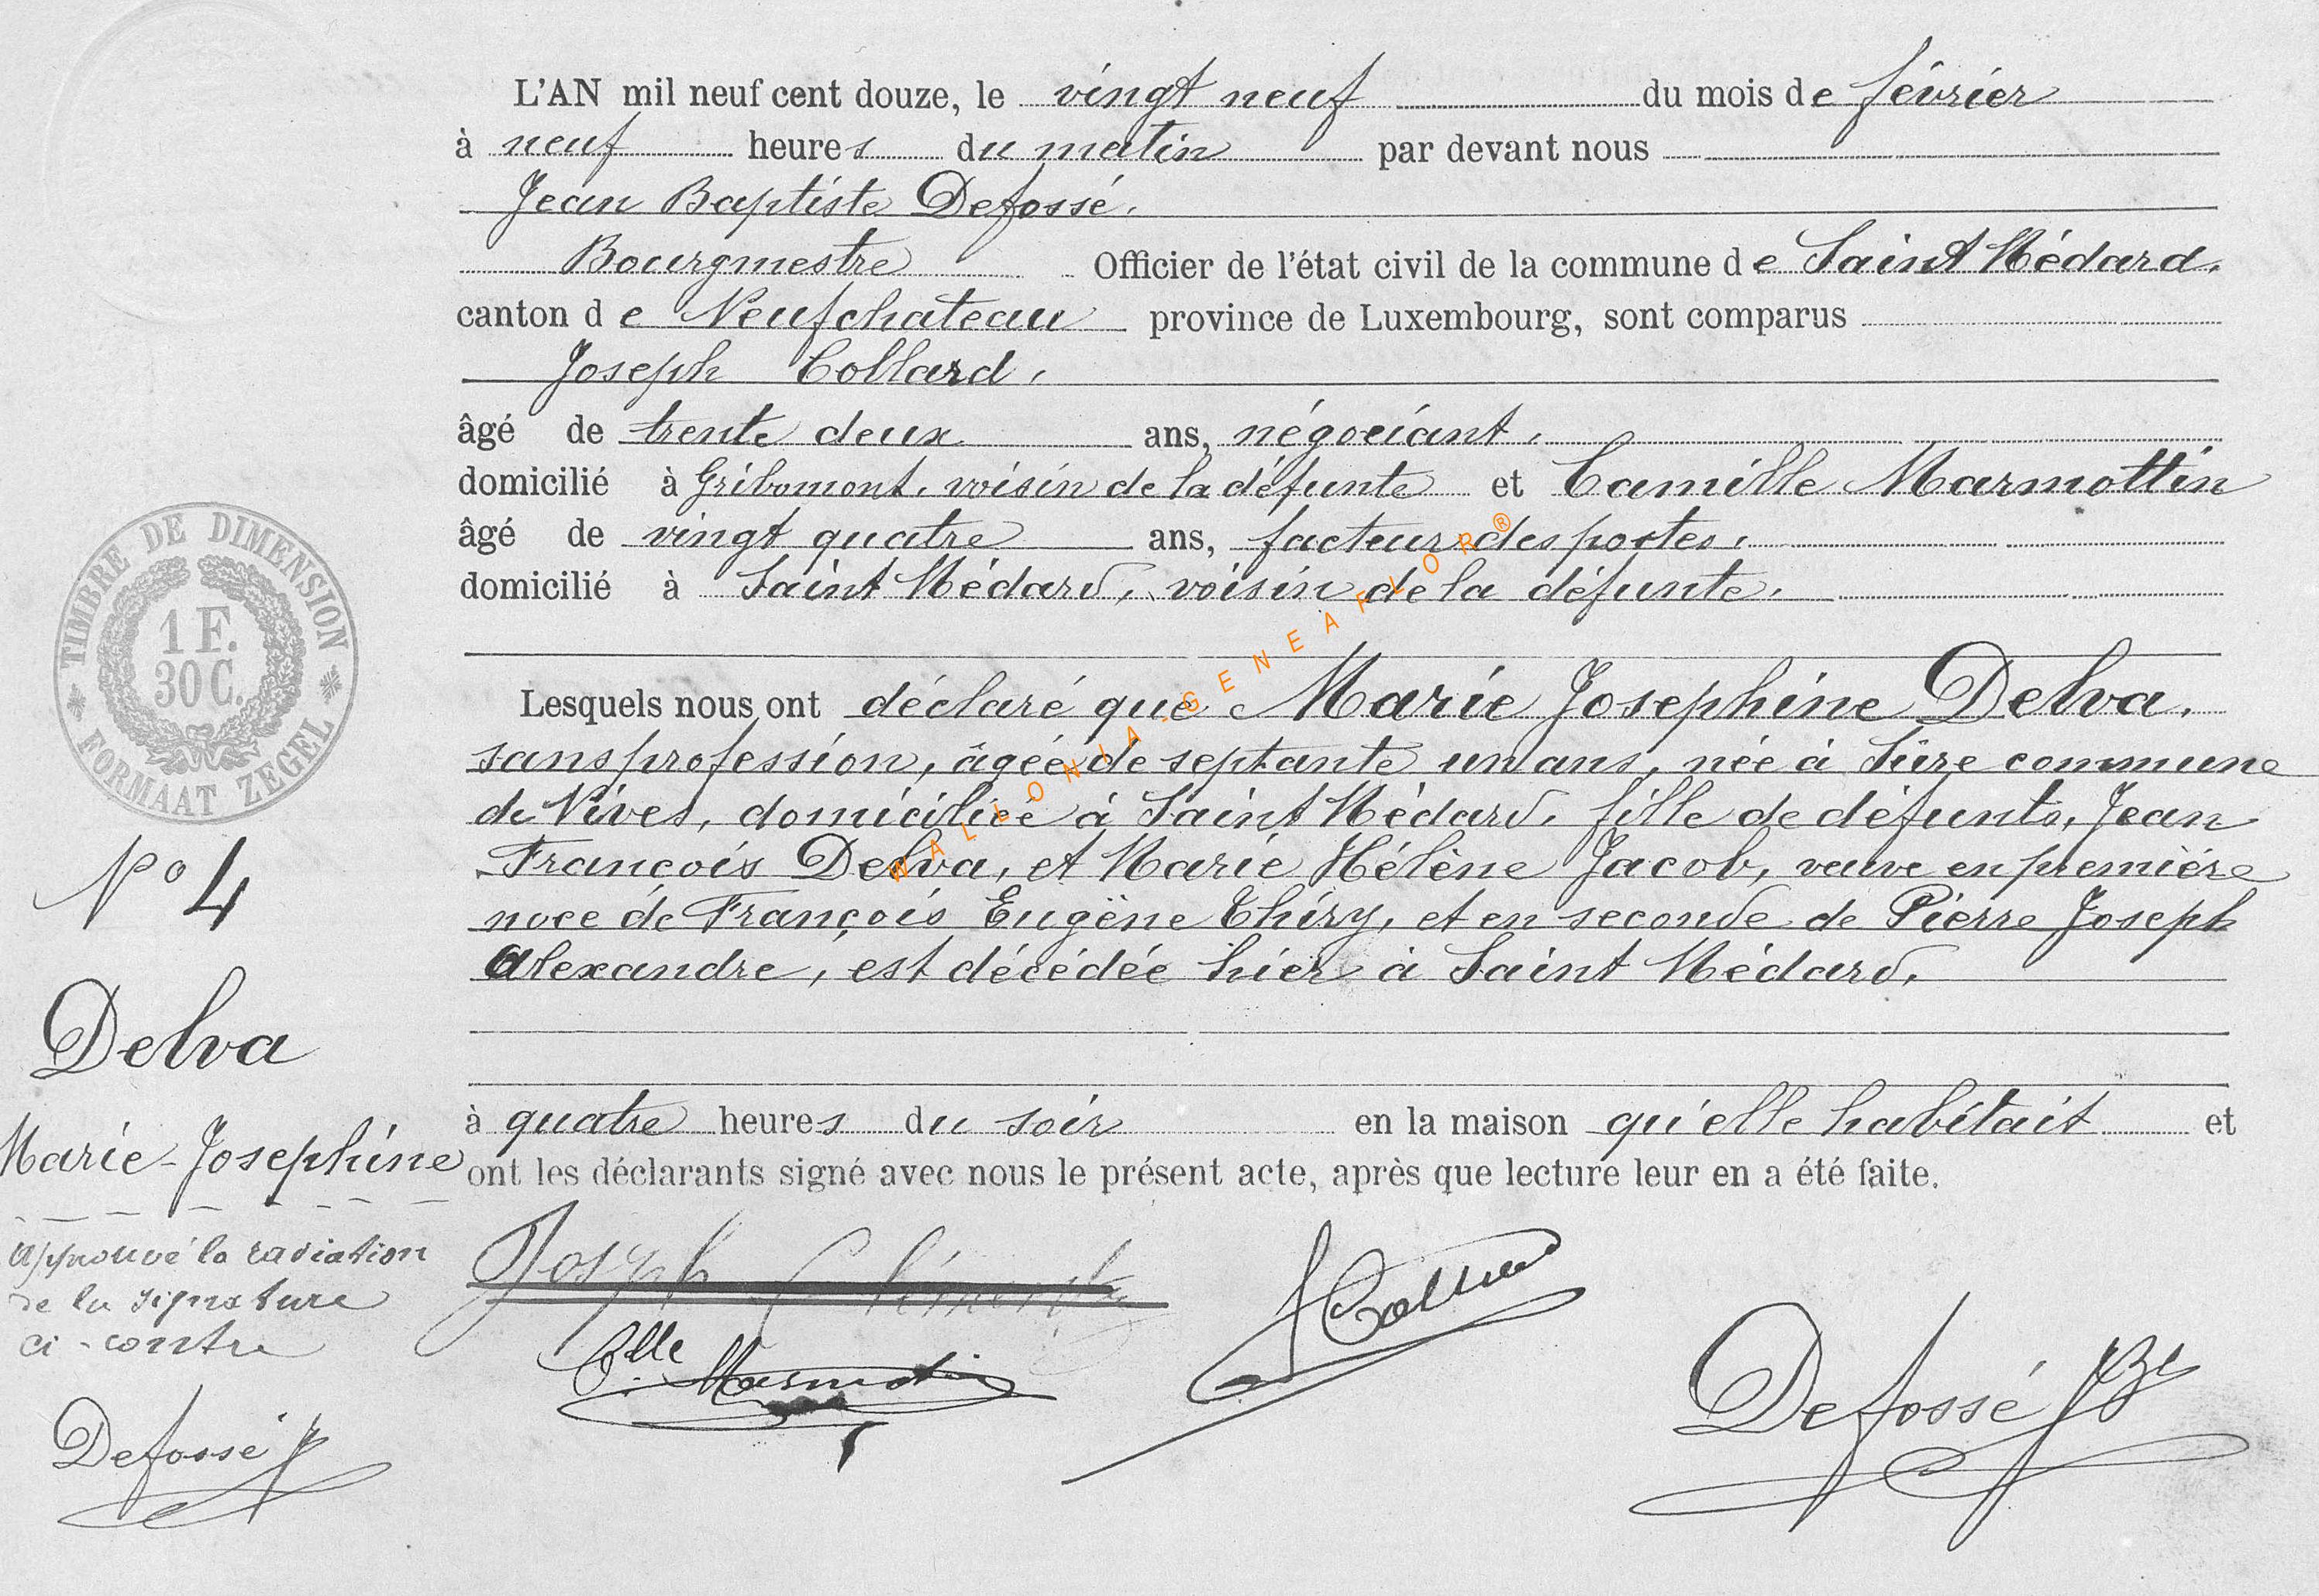 L'AN mil neuf cent douze, le vingt neuf du mois de février
à neuf heures du matin par devant nous
Jean Baptiste Defossé.
Bourgmestre Officier de l'état civil de la commune de Saint Médard.
canton de Neufchateau province de Luxembourg, sont comparus
Joseph Collard,
âgé de trente deux ans, négociant,
domicilié à Gribomont, voisin de la défunte et Camille Marmottin
âgé de vingt quatre ans, facteur des postes,
domicilié à Saint Médard, voisin de la défunte.
Lesquels nous ont déclaré que Marie Josephine Delva,
sans profession, âgée de septante un ans, née à Sûre commune
de Nives, domiciliée à Saint Médard, fille de défunts, Jean
François Delva, et Marie Hélène Jacob, veuve en première
noce de François Eugène Thiry, et en seconde de Pierre Joseph
Alexandre, est décédée hier à Saint Médard,
à quatre heures du soir en la maison qu'elle habitait et
ont les déclarants signé avec nous le présent acte, après que lecture leur en a été faite.
TIMBRE DE DIMENSION
1 F.
30 C.
FORMAAT ZEGEL
N° 4
Delva
Marie-Josephine
Approuvé la radiation
de la signature
ci-contre
Defossé
Joseph
Clle Marmottin
J Collard
Defossé JBt
WALLONIA-GENEAFLOR®